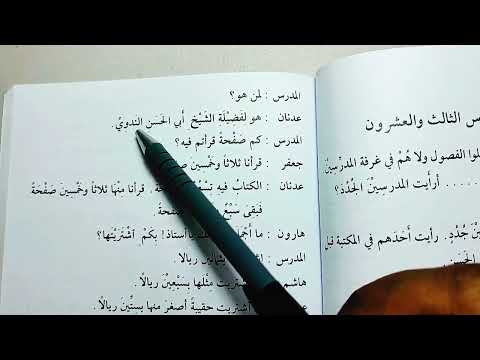 المدرس : لمن هو؟
عدنان : هو لفَضِيْلَةِ الشَّيْخِ أَبي الحَسَنِ الندويّ.
المدرس : كم صَفْحةً قرأتم فيه؟
جعفر : قرأنا ثلاثاً وخَمْسين
عدنان : الكتابُ فيه صَفْحةً. قرأنا مِنْها ثلاثاً وخَمْسينَ صَفْحَةً
فَبَقِيَ سَبْعٌ صفحةً.
هارون : ما يا أستاذ! بِكَمْ اشْتَرَيْتَها؟
المدرس : بثمانِينَ ريالا.
هاشم : اشتريت مثْلَها بِسَبْعِيْنَ ريالًا.
اشتريت حقيبةً أصغرَ منها بِستِّينَ ريالا.
س الثالث والعشرون
لوا الفصول ولا هُمْ في غرفة المدرِّسِيْنَ
..... أرأيت المدرسِيْنَ الجُدُدَ؟
جُدُدٍ. رأيت أَحَدَهم في المكتبة قبل